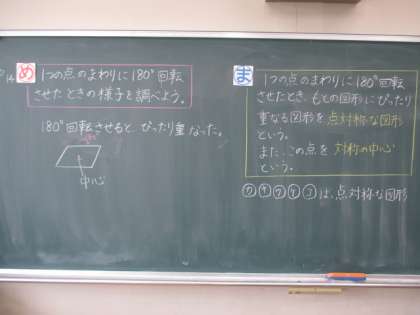 P14
め
1つの点のまわりに180°回転
させたときの様子を調べよう。
180°回転させると、ぴったり重なった。
中心
ま
1つの点のまわりに180°回転
させたとき、もとの図形にぴったり
重なる図形を点対称な図形
という。
また、この点を対称の中心
という。
は、点対称な図形